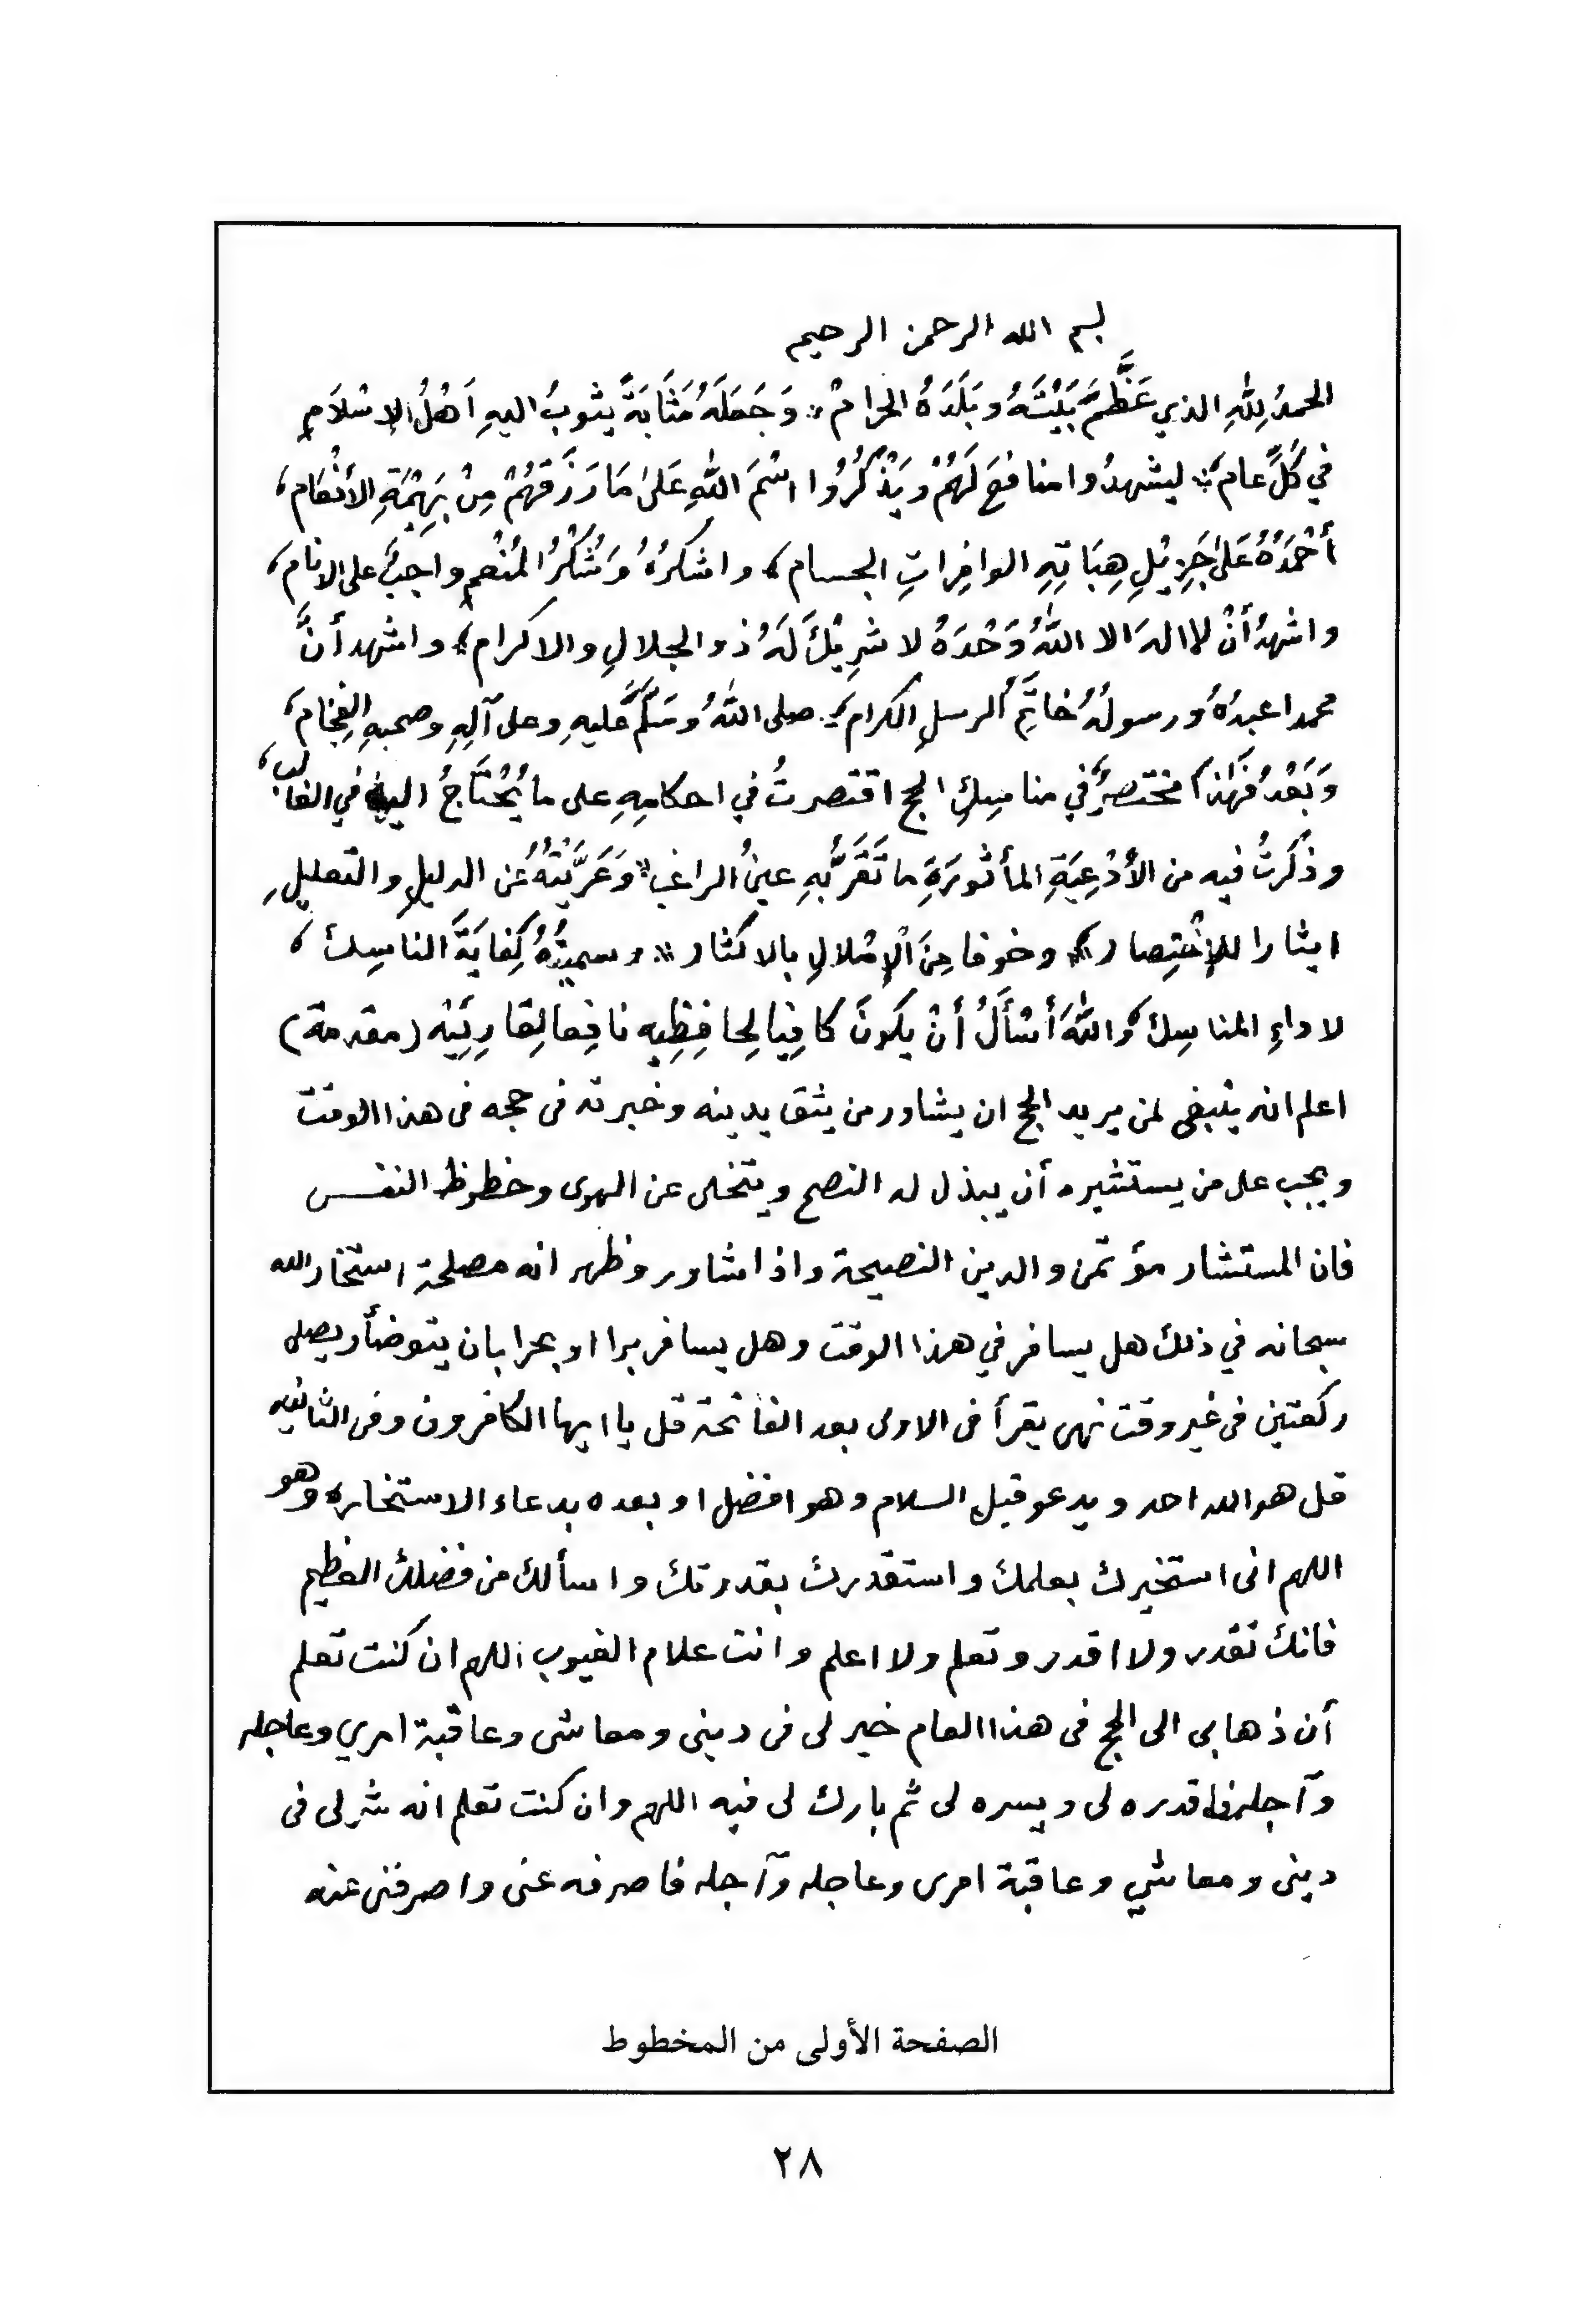 بسم الله الرحمن الرحيم
الحمدُ لِلّٰهِ الذي عَظَّمَ بَيْتَهُ وبَلَدَهُ الحرامْ * وَجَعَلَهُ مَثَابَةً يثوبُ اليهِ اَهْلُ الاِسْلَامِ
في كُلِّ عام * ليشهدُوا منافعَ لَهُمْ وَيَذْكُرُوا اسْمَ اللّٰهِ عَلىٰ مَا رَزَقَهُمْ مِنْ بَهِيْمَةِ الأَنْعَام،
أَحْمَدُهُ عَلىٰ جَزِيْلِ هِبَاتِهِ الوافِراتِ الجسام، واشكرُهُ وَشُكْرُ المُنْعِمِ واجبٌ على الانام،
واشهدُ أَنْ لا الهَ الا اللّٰهُ وَحْدَهُ لا شَرِيْكَ لَهُ ذو الجلالِ والاكرام، واشهد أنَّ
محمدا عبدُهُ ورسولُهُ خاتِمُ الرسلِ الكرام، صلى اللّٰهُ وسَلَّمَ عليهِ وعلى آلِهِ وصحبهِ الفِخَام،
وَبَعْدُ فَهٰذا مختصرٌ في مناسِكِ الحج اقتصرتُ في احكامِهِ على ما يُحْتَاجُ اليه في الغالب،
وذكَرتُ فيه من الأَدْعِيَةِ المأثورَةِ ما تَقَرُّ بِهِ عينُ الراغب * وَعَرَّيْتُهُ عَن الدليلِ والتعليلِ
ايثارا للاِخْتِصار * وخوفا مِنَ الْاِمْلالِ بالاكثار * وسميتُهُ كِفايَةَ الناسِك،
لاداءِ المناسِك، واللّٰهَ أَسْأَلُ أَنْ يكونَ كافِيا لِحافِظِيهِ نافِعا لِقارِئِيْه (مقدمة)
اعلم انه ينبغى لمن يريد الحج ان يشاور من يثق بدينه وخبرته فى حجه فى هذا الوقت
ويجب على من يستشيره أن يبذل له النصح ويتخلى عن الهوى وحظوظ النفس
فان المستشار مؤتمن والدين النصيحة واذا شاور وظهر انه مصلحة استخار الله
سبحانه في ذلك هل يسافر في هذا الوقت وهل يسافر برا او بحرا بان يتوضأ ويصلى
ركعتين فى غير وقت نهى يقرأ فى الاولى بعد الفاتحة قل يا ايها الكافرون وفى الثانيه
قل هو الله احد ويدعو قبل السلام وهو افضل او بعده بدعاء الاستخاره وهو
اللهم انى استخيرك بعلمك واستقدرك بقدرتك واسألك من فضلك العظيم
فانك تقدر ولا اقدر وتعلم ولا اعلم وانت علام الغيوب اللهم ان كنت تعلم
أن ذهابي الى الحج فى هذا العام خير لى فى دينى ومعاشى وعاقبة امري وعاجله
وآجله فاقدره لى ويسره لى ثم بارك لى فيه اللهم وان كنت تعلم انه شر لى فى
دينى ومعاشي وعاقبة امرى وعاجله وآجله فاصرفه عنى واصرفنى عنه
الصفحة الأولى من المخطوط
٢٨